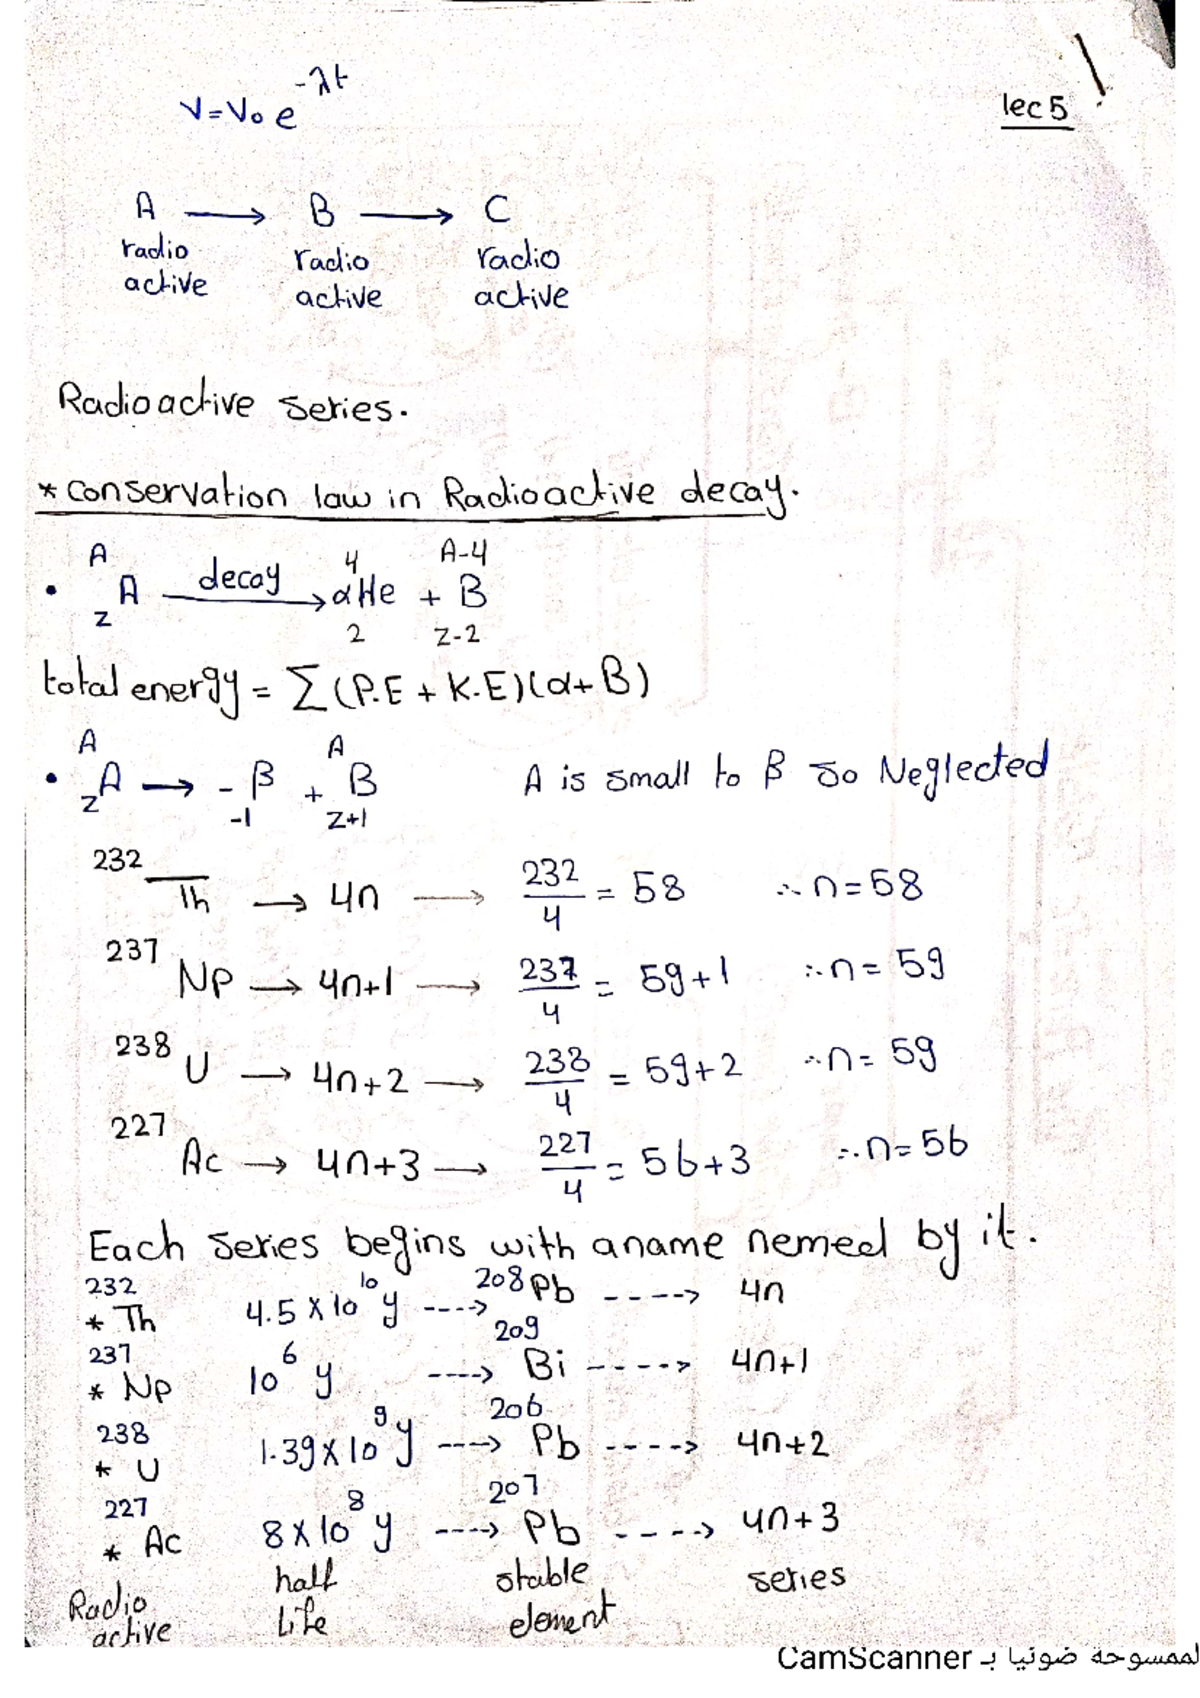 lec 5
V = V₀ e^-λt
A → B → C
radio active radio active radio active
Radioactive series.
* conservation law in Radioactive decay.
• ᴬ_Z A decay→ ⁴₂ αHe + ᴬ⁻⁴_Z-2 B
total energy = Σ (P.E + K.E)(α+B)
• ᴬ_Z A → -β_-1 + ᴬ_Z+1 B A is small to β so Neglected
²³² Th → 4n → 232/4 = 58 ∴ n = 58
²³⁷ Np → 4n+1 → 237/4 = 59+1 ∴ n = 59
²³⁸ U → 4n+2 → 238/4 = 59+2 ∴ n = 59
²²⁷ Ac → 4n+3 → 227/4 = 56+3 ∴ n = 56
Each series begins with aname nemed by it.
* ²³² Th 4.5 x 10¹⁰ y ----> ²⁰⁸Pb ----> 4n
* ²³⁷ Np 10⁶ y ----> ²⁰⁹ Bi ----> 4n+1
* ²³⁸ U 1.39 x 10⁹ y ----> ²⁰⁶ Pb ----> 4n+2
* ²²⁷ Ac 8 x 10⁸ y ----> ²⁰⁷ Pb ----> 4n+3
Radio active half life stable element series
لممسوحة ضوئيا بـ CamScanner